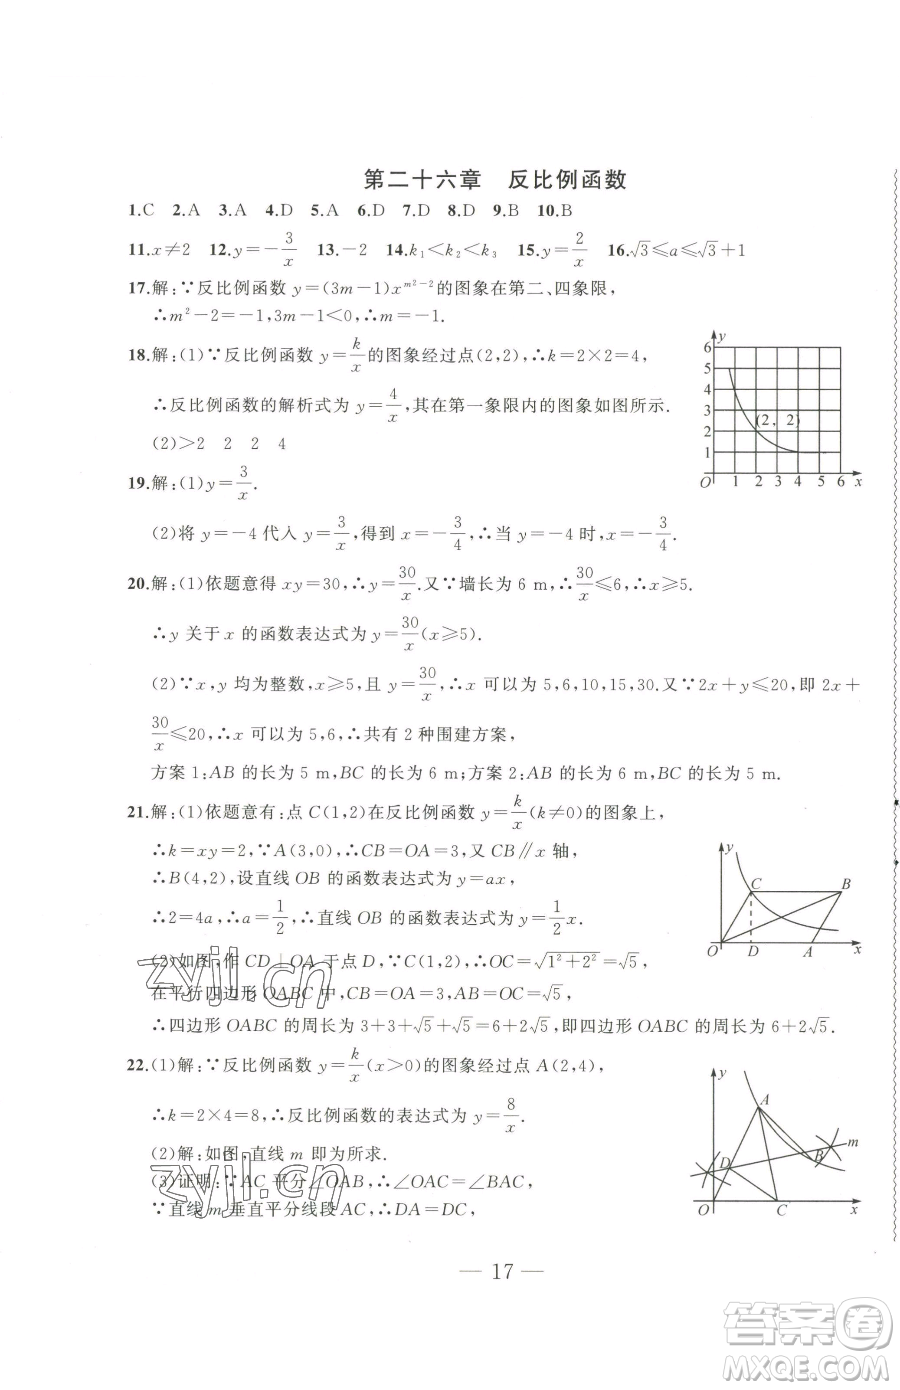 第二十六章　反比例函数
1.C 2.A 3.A 4.D 5.A 6.D 7.D 8.D 9.B 10.B
11.x≠2 12.y=-3/x 13.-2 14.k₁<k₂<k₃ 15.y=2/x 16.√3≤a≤√3+1
17.解:∵反比例函数 y=(3m-1)x^(m²-2)的图象在第二、四象限,
∴m²-2=-1,3m-1<0,∴m=-1.
18.解:(1)∵反比例函数 y=k/x的图象经过点(2,2),∴k=2×2=4,
∴反比例函数的解析式为 y=4/x,其在第一象限内的图象如图所示.
(2)>2 2 2 4
y
6
5
4
3
2
1
(2, 2)
O 1 2 3 4 5 6 x
19.解:(1)y=3/x.
(2)将 y=-4 代入 y=3/x,得到 x=-3/4,∴当 y=-4 时,x=-3/4.
20.解:(1)依题意得 xy=30,∴y=30/x.又∵墙长为 6 m,∴30/x≤6,∴x≥5.
∴y 关于 x 的函数表达式为 y=30/x(x≥5).
(2)∵x,y 均为整数,x≥5,且 y=30/x,∴x 可以为 5,6,10,15,30.又∵2x+y≤20,即 2x+
30/x≤20,∴x 可以为 5,6,∴共有 2 种围建方案,
方案 1:AB 的长为 5 m,BC 的长为 6 m;方案 2:AB 的长为 6 m,BC 的长为 5 m.
21.解:(1)依题意有:点 C(1,2)在反比例函数 y=k/x(k≠0)的图象上,
∴k=xy=2,∵A(3,0),∴CB=OA=3,又 CB∥x 轴,
∴B(4,2),设直线 OB 的函数表达式为 y=ax,
∴2=4a,∴a=1/2,∴直线 OB 的函数表达式为 y=1/2x.
(2)如图,作 CD⊥OA 于点 D,∵C(1,2),∴OC=√(1²+2²)=√5,
在平行四边形 OABC 中,CB=OA=3,AB=OC=√5,
∴四边形 OABC 的周长为 3+3+√5+√5=6+2√5,即四边形 OABC 的周长为 6+2√5.
y
C B
O D A x
22.(1)解:∵反比例函数 y=k/x(x>0)的图象经过点 A(2,4),
∴k=2×4=8,∴反比例函数的表达式为 y=8/x.
(2)解:如图,直线 m 即为所求.
(3)证明:∵AC 平分∠OAB,∴∠OAC=∠BAC,
∵直线 m 垂直平分线段 AC,∴DA=DC,
y
A
m
B
D
O C x
— 17 —
zyjl.cn
zyjl.cn
答案卷
MXQE.COM